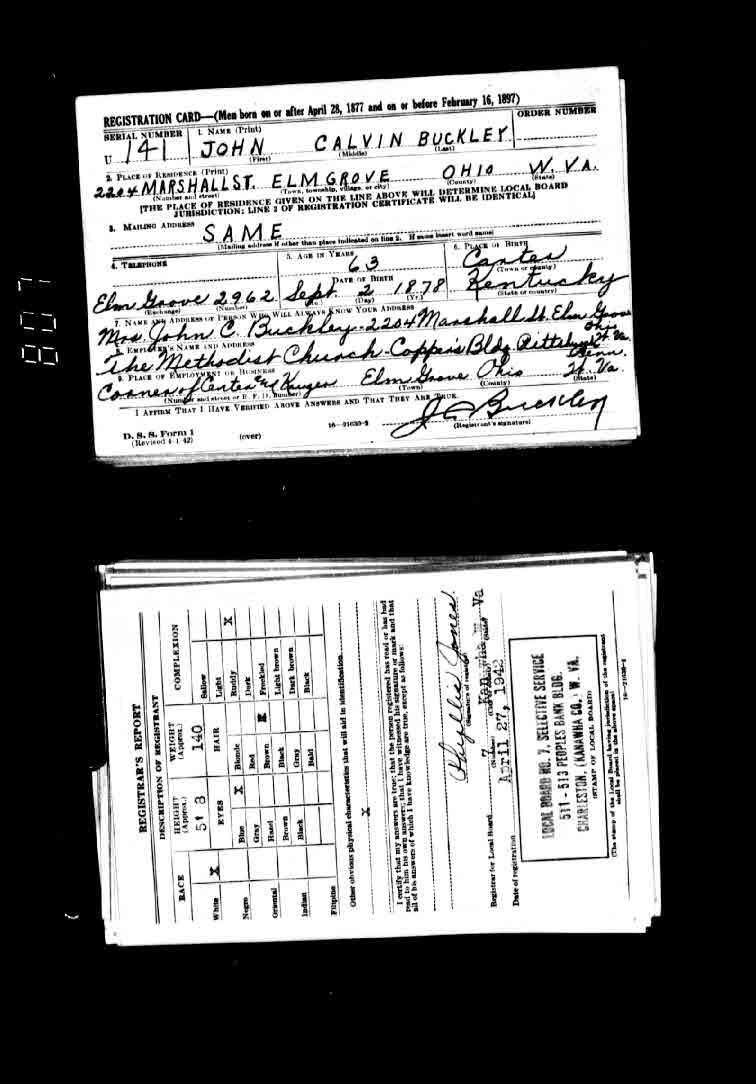 REGISTRATION CARD—(Men born on or after April 28, 1877 and on or before February 16, 1897)
SERIAL NUMBER 1. NAME (Print) ORDER NUMBER
U 141 JOHN CALVIN BUCKLEY
(First) (Middle) (Last)
2. PLACE OF RESIDENCE (Print)
2204 MARSHALL ST. ELM GROVE OHIO W. VA.
(Number and street) (Town, township, village, or city) (County) (State)
[THE PLACE OF RESIDENCE GIVEN ON THE LINE ABOVE WILL DETERMINE LOCAL BOARD
JURISDICTION; LINE 2 OF REGISTRATION CERTIFICATE WILL BE IDENTICAL]
3. MAILING ADDRESS
SAME
[Mailing address if other than place indicated on line 2. If same insert word same]
4. TELEPHONE 5. AGE IN YEARS 6. PLACE OF BIRTH
63 Carter
(Town or county)
DATE OF BIRTH
Elm Grove 2962 Sept. 2 1878 Kentucky
(Exchange) (Number) (Mo.) (Day) (Yr.) (State or country)
7. NAME AND ADDRESS OF PERSON WHO WILL ALWAYS KNOW YOUR ADDRESS
Mrs. John C. Buckley - 2204 Marshall St. Elm Grove
Ohio W. Va.
8. EMPLOYER'S NAME AND ADDRESS
The Methodist Church - Coppers Bldg. Pittsburg Penn.
9. PLACE OF EMPLOYMENT OR BUSINESS
Corner of Carter and Kruger Elm Grove Ohio W. Va.
(Number and street or R. F. D. number) (Town) (County) (State)
I AFFIRM THAT I HAVE VERIFIED ABOVE ANSWERS AND THAT THEY ARE TRUE.
J C Buckley
D. S. S. Form 1
(Revised 4-1-42) (over) 16—21630-2 (Registrant's signature)
807
REGISTRAR'S REPORT
DESCRIPTION OF REGISTRANT
RACE HEIGHT (Approx.) WEIGHT (Approx.) COMPLEXION
5' 8 140
White X EYES HAIR Sallow
Negro Blue X Blonde Light
Oriental Gray Red Ruddy X
Indian Hazel Brown X Dark
Filipino Brown Black Freckled
Black Gray Light brown
Bald Dark brown
Black
Other obvious physical characteristics that will aid in identification
X
I certify that my answers are true; that the person registered has read or has had
read to him his own answers; that I have witnessed his signature or mark and that
all of his answers of which I have knowledge are true, except as follows:
Phyllis Jones
(Signature of registrar)
Registrar for Local Board 7 Kanawha W Va
(Number) (City or county) (State)
Date of registration April 27, 1942
LOCAL BOARD NO. 7, SELECTIVE SERVICE
511 - 513 PEOPLES BANK BLDG.
CHARLESTON, (KANAWHA CO.) W. VA.
(STAMP OF LOCAL BOARD)
(The stamp of the Local Board having jurisdiction of the registrant
shall be placed in the above space)
16—21630-2